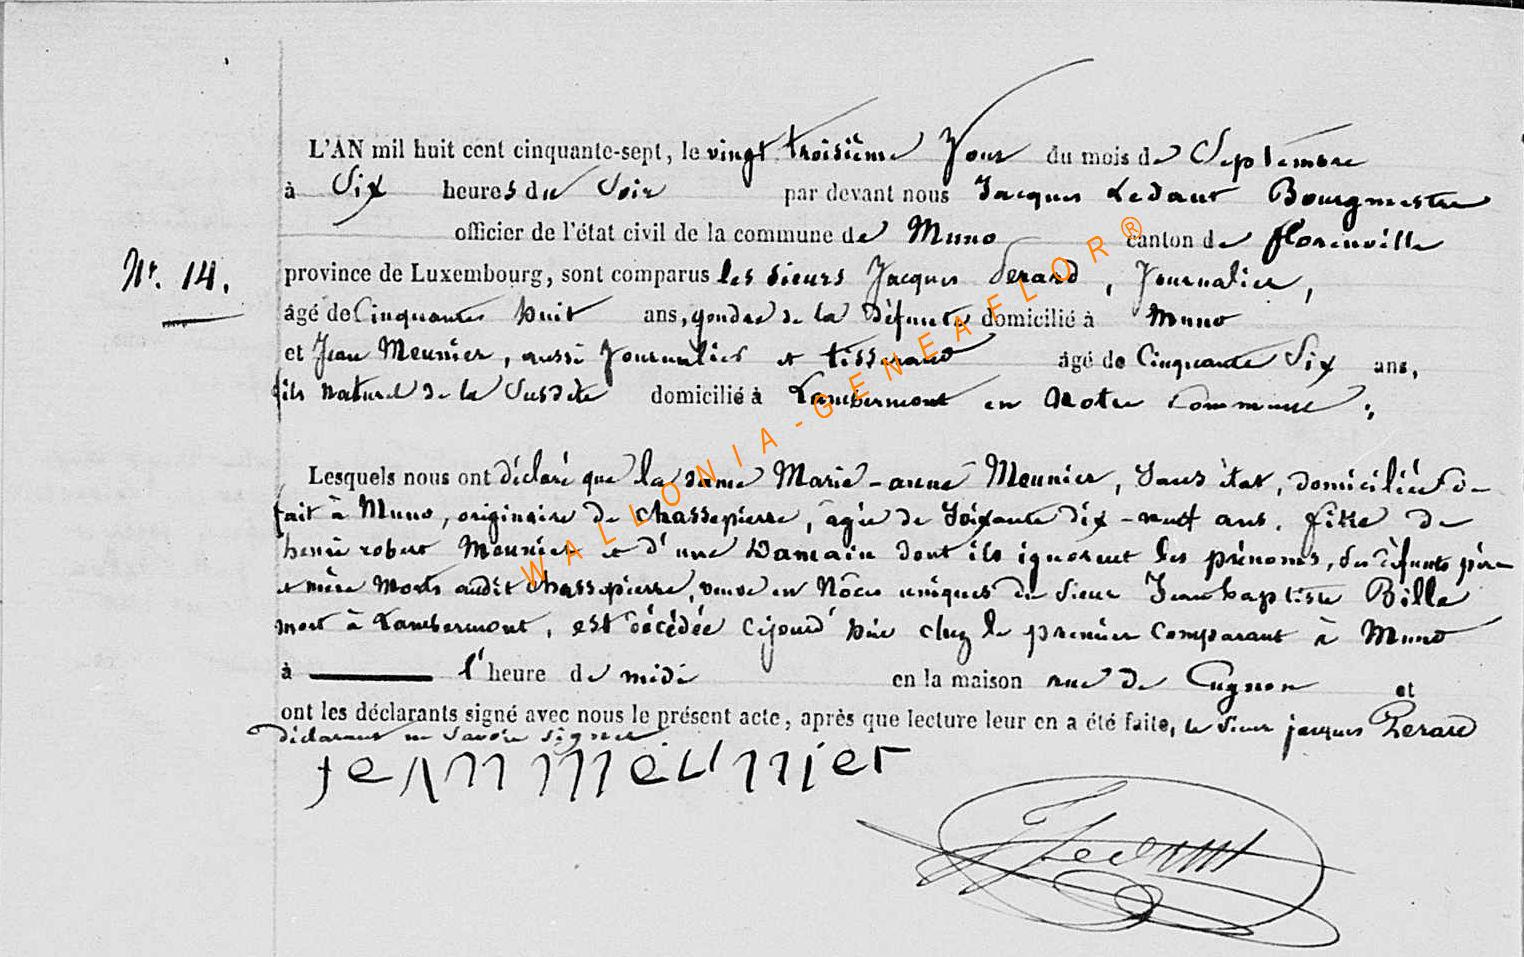 L'AN mil huit cent cinquante-sept, le vingt troisième jour du mois de Septembre
à Six heures du Soir par devant nous Jacques Ledant Bourgmestre
officier de l'état civil de la commune de Muno canton de florenville
Nr. 14.
province de Luxembourg, sont comparus les sieurs Jacques Perard, Journalier,
âgé de Cinquante huit ans, gendre de la défunte domicilié à Muno
et Jean Meunier, aussi Journalier et tisserand âgé de Cinquante Six ans,
fils naturel de la Susdite domicilié à Lambermont en Notre Commune;
Lesquels nous ont déclaré que la dame Marie-anne Meunier, Sans état, domiciliée de
fait à Muno, originaire de chassepierre, âgée de Soixante dix-neuf ans. fille de
henri robert Meunier et d'une Damain dont ils ignorent les prénoms, des défunts père
et mère morts audit chassepierre, veuve en Nôces uniques du Sieur Jeanbaptiste Bille
mort à Lambermont, est décédée cejourd'hui chez le premier Comparant à Muno
à l'heure de midi en la maison rue de Cugnon et
ont les déclarants signé avec nous le présent acte, après que lecture leur en a été faite, le Sieur jacques Perard
déclarant ne Savoir Signer
jean meunier
JLedant
WALLONIA-GENEAFLOR®